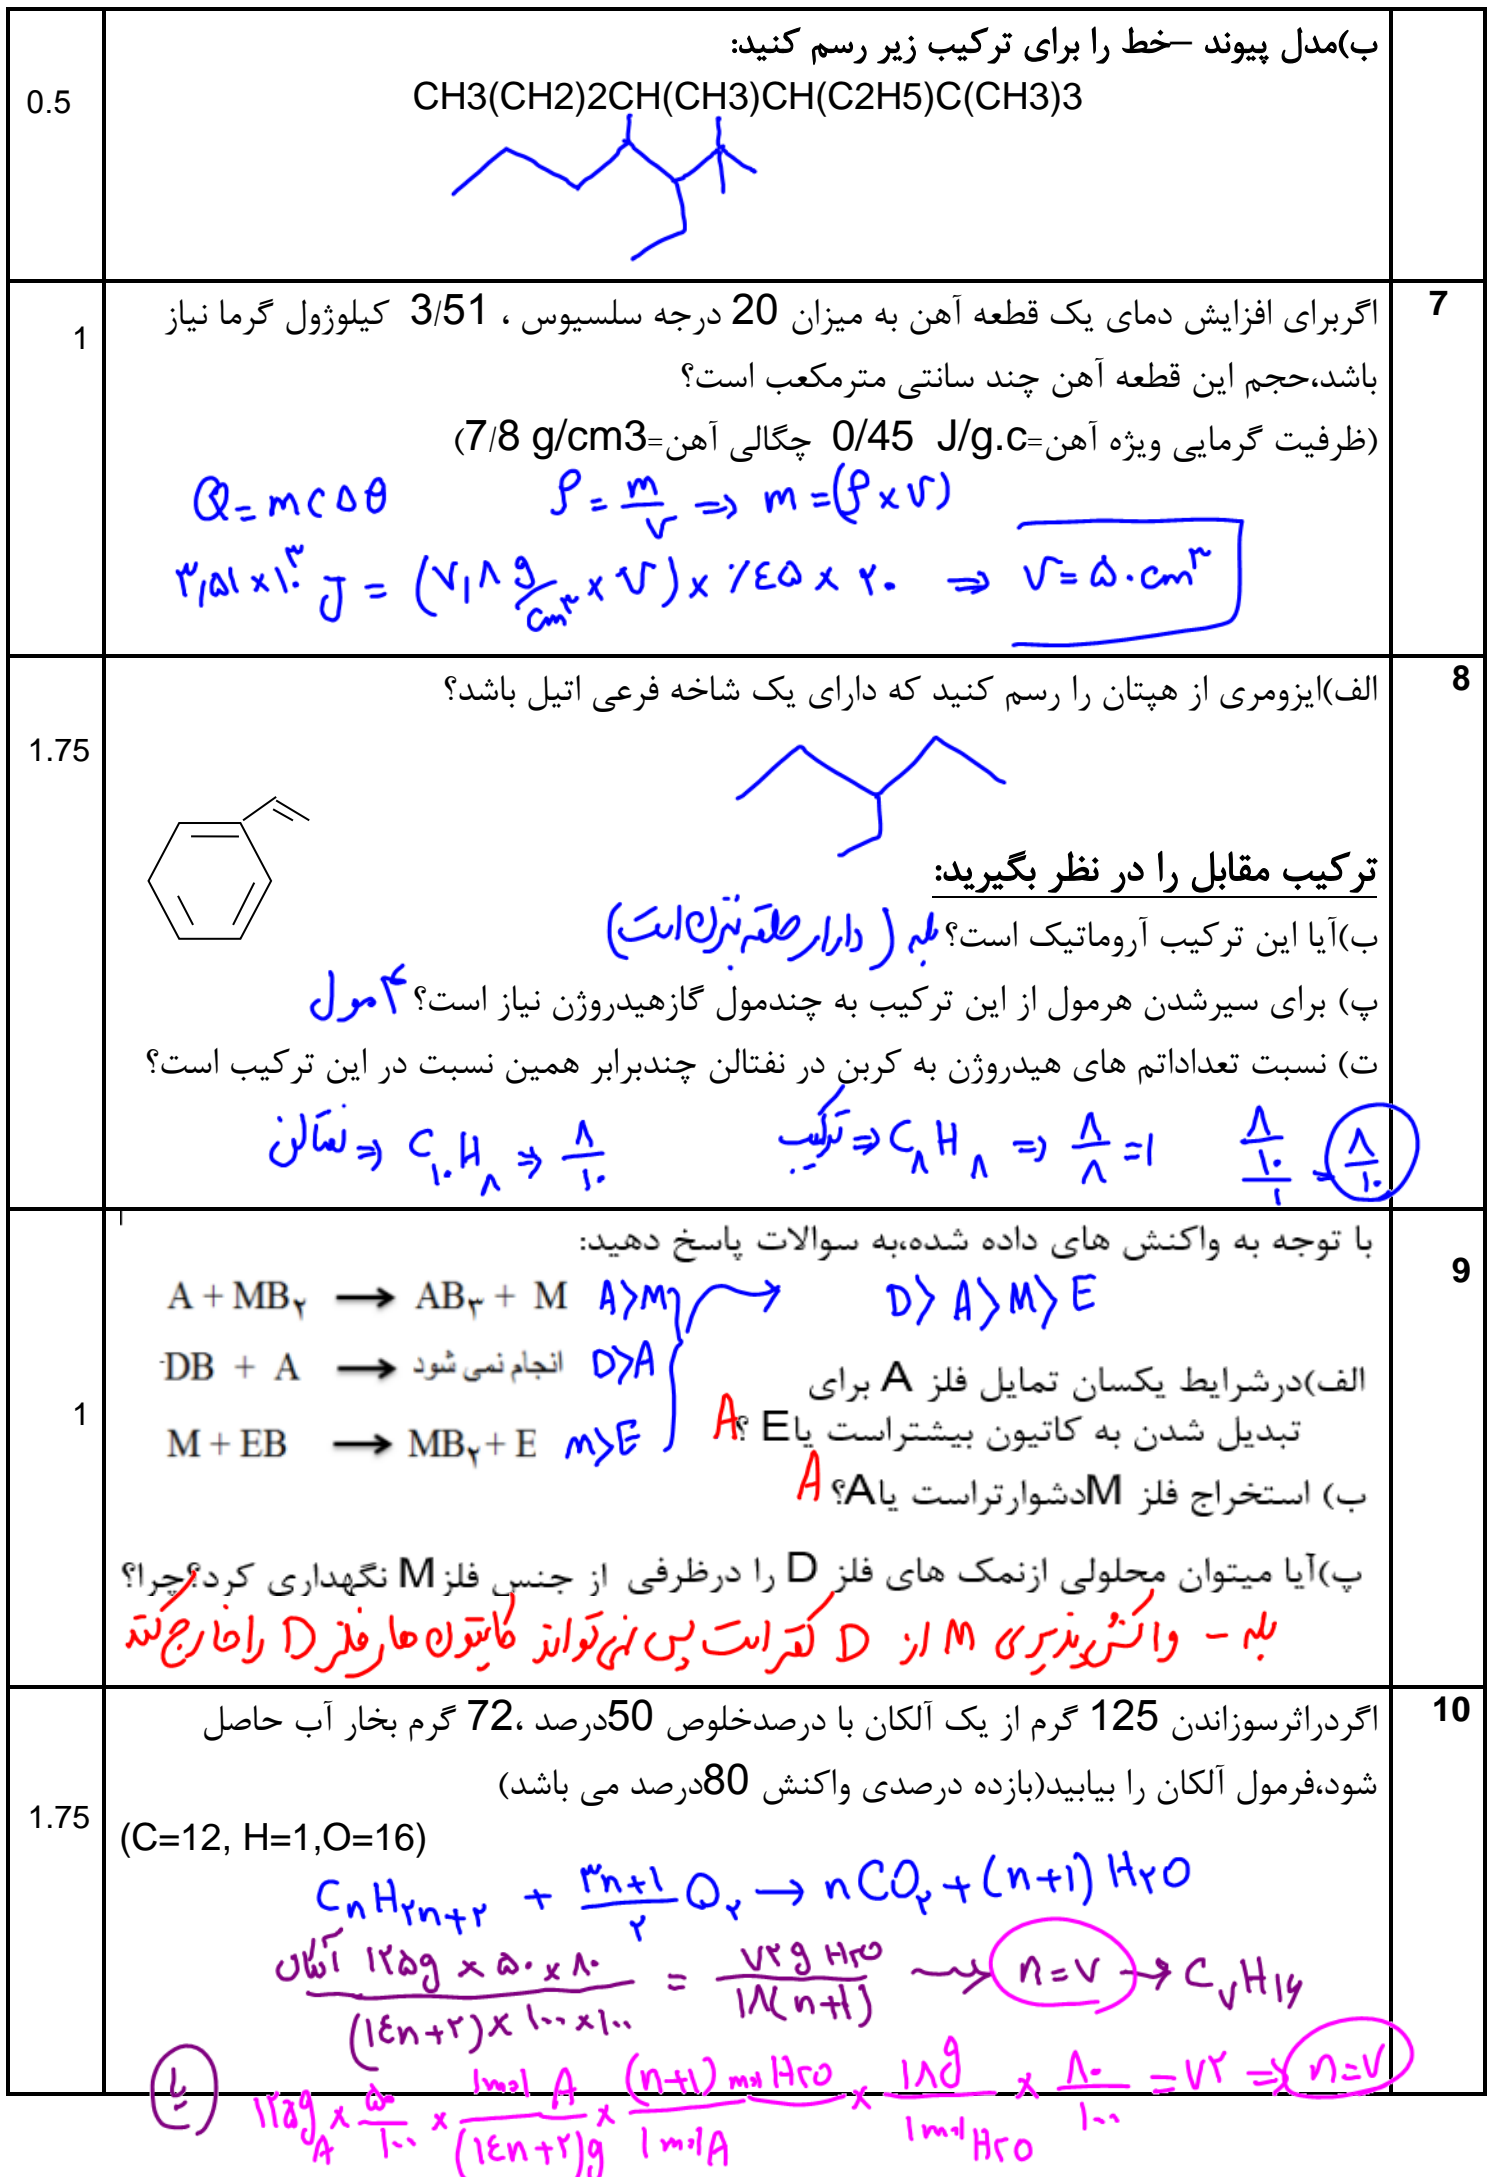 ب)مدل پیوند –خط را برای ترکیب زیر رسم کنید:
0.5
CH3(CH2)2CH(CH3)CH(C2H5)C(CH3)3
7
اگربرای افزایش دمای یک قطعه آهن به میزان 20 درجه سلسیوس ، 3/51 کیلوژول گرما نیاز
1
باشد،حجم این قطعه آهن چند سانتی مترمکعب است؟
(ظرفیت گرمایی ویژه آهن=0/45 J/g.c چگالی آهن=7/8 g/cm3)
Q = mcΔθ ρ = m/V ⇒ m = (ρ×V)
۳,۵۱ × ۱۰^۳ J = (۷,۸ g/cm^۳ × V) × ٪٤۵ × ۲۰ ⇒ V = ۵۰ cm^۳
8
الف)ایزومری از هپتان را رسم کنید که دارای یک شاخه فرعی اتیل باشد؟
1.75
ترکیب مقابل را در نظر بگیرید:
ب)آیا این ترکیب آروماتیک است؟ بله (دارای حلقه بنزن است)
پ) برای سیرشدن هرمول از این ترکیب به چندمول گازهیدروژن نیاز است؟ ۴ مول
ت) نسبت تعداداتم های هیدروژن به کربن در نفتالن چندبرابر همین نسبت در این ترکیب است؟
نفتالن ⇒ C۱۰H۸ ⇒ ۸/۱۰ ترکیب ⇒ C۸H۸ ⇒ ۸/۸ = ۱ (۸/۱۰)/۱ = ۸/۱۰
9
با توجه به واکنش های داده شده،به سوالات پاسخ دهید:
A + MB۲ ⟶ AB۳ + M A>M D>A>M>E
DB + A ⟶ انجام نمی شود D>A
M + EB ⟶ MB۲ + E M>E
1
الف)درشرایط یکسان تمایل فلز A برای
تبدیل شدن به کاتیون بیشتراست یاE ؟ A
ب) استخراج فلز Mدشوارتراست یاA؟ A
پ)آیا میتوان محلولی ازنمک های فلز D را درظرفی از جنس فلزM نگهداری کرد؟چرا؟
بله - واکنش پذیری M از D کمتر است پس نمی تواند کاتیون های فلز D را خارج کند
10
اگردراثرسوزاندن 125 گرم از یک آلکان با درصدخلوص 50درصد ،72 گرم بخار آب حاصل
شود،فرمول آلکان را بیابید(بازده درصدی واکنش 80درصد می باشد)
1.75
(C=12, H=1,O=16)
CnH۲n+۲ + (۳n+۱)/۲ O۲ → nCO۲ + (n+۱) H۲O
(۱۲۵g آلکان × ۵۰ × ۸۰)/((۱٤n+۲) × ۱۰۰ × ۱۰۰) = (۷۲g H۲O)/(۱۸(n+۱)) → n=۷ → C۷H۱۶
یا ۱۲۵g A × ۵۰/۱۰۰ × (۱mol A)/((۱٤n+۲)g) × ((n+۱) mol H۲O)/(۱mol A) × (۱۸g)/(۱mol H۲O) × ۸۰/۱۰۰ = ۷۲ ⇒ n=۷